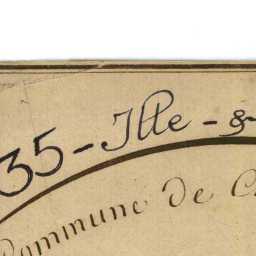 35-Ille-&-
Commune de C